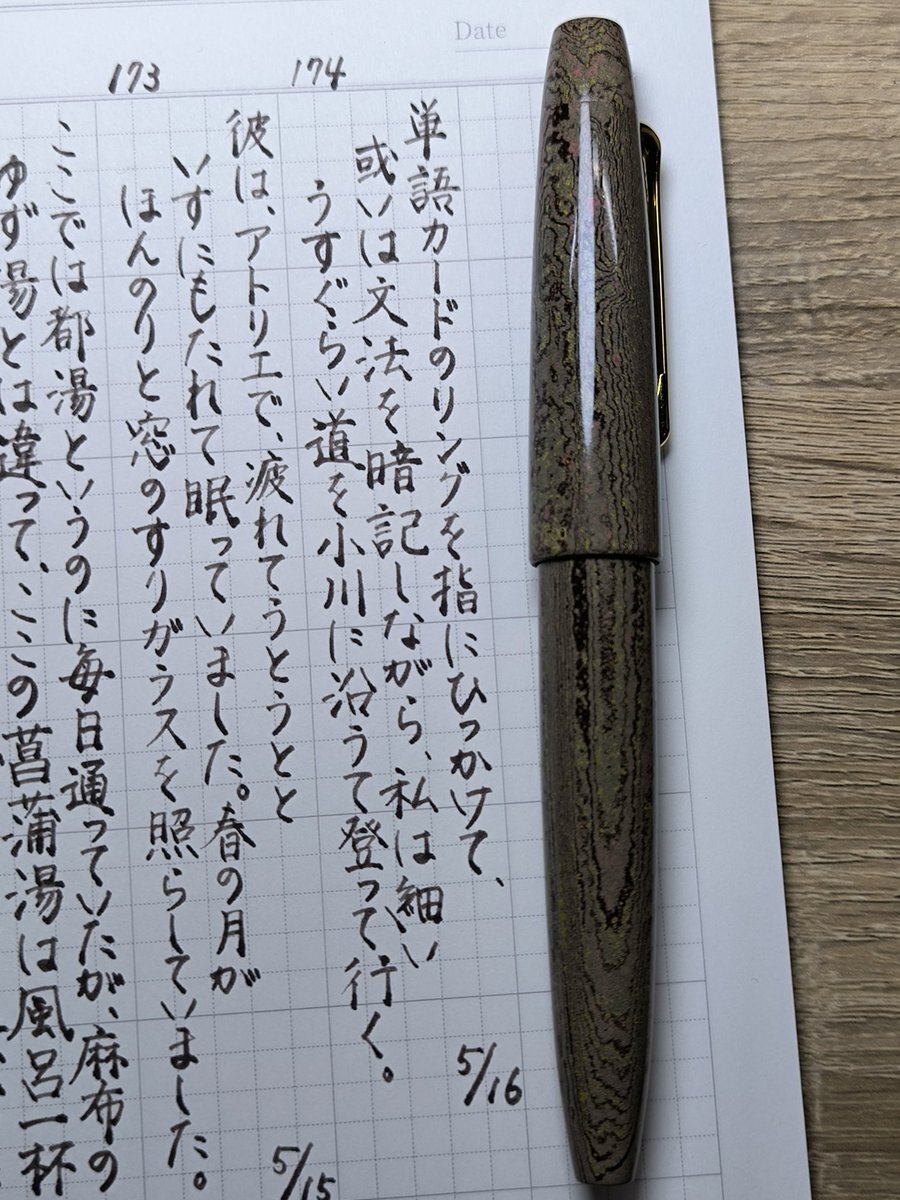 Date
174
単語カードのリングを指にひっかけて、
或いは文法を暗記しながら、私は細い
うすぐらい道を小川に沿うて登って行く。
5/16
173
彼は、アトリエで、疲れてうとうとと
いすにもたれて眠っていました。春の月が
ほんのりと窓のすりガラスを照らしていました。
5/15
ここでは都湯というのに毎日通っていたが、麻布の
ゆず湯とは違って、ここの菖蒲湯は風呂一杯